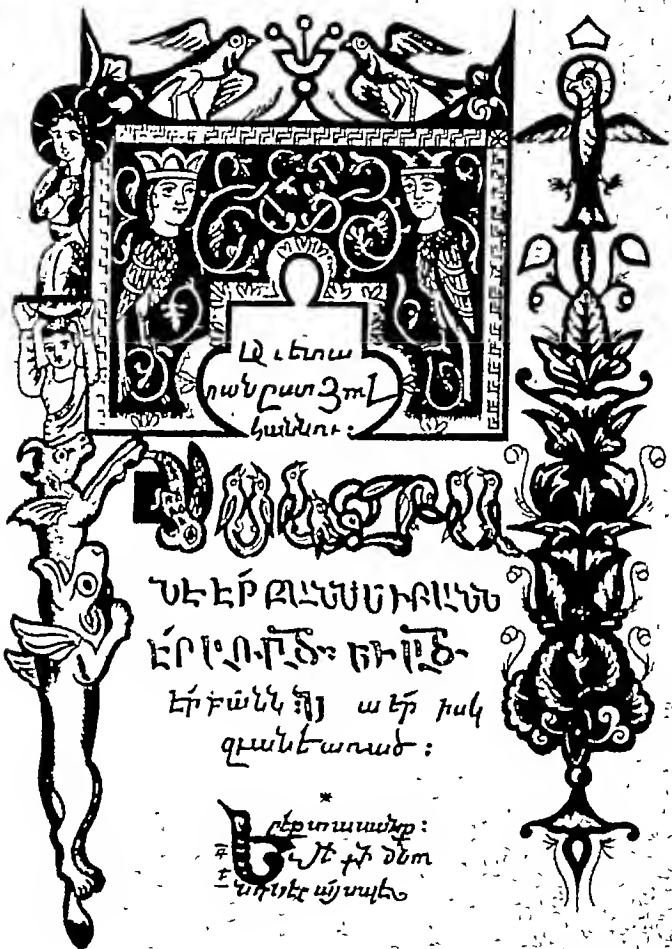 Աւետա
րան ըստ Յով
հաննու :
ԻՍԿԶԲԱ
ՆԷ ԷՐ ԲԱՆՆ ԵՒ ԲԱՆՆ
ԷՐ ԱՌ ԱԾ : ԵՒ ԱԾ
էր բանն : նա էր իսկ
զբանէ առ ած :
այսպէս